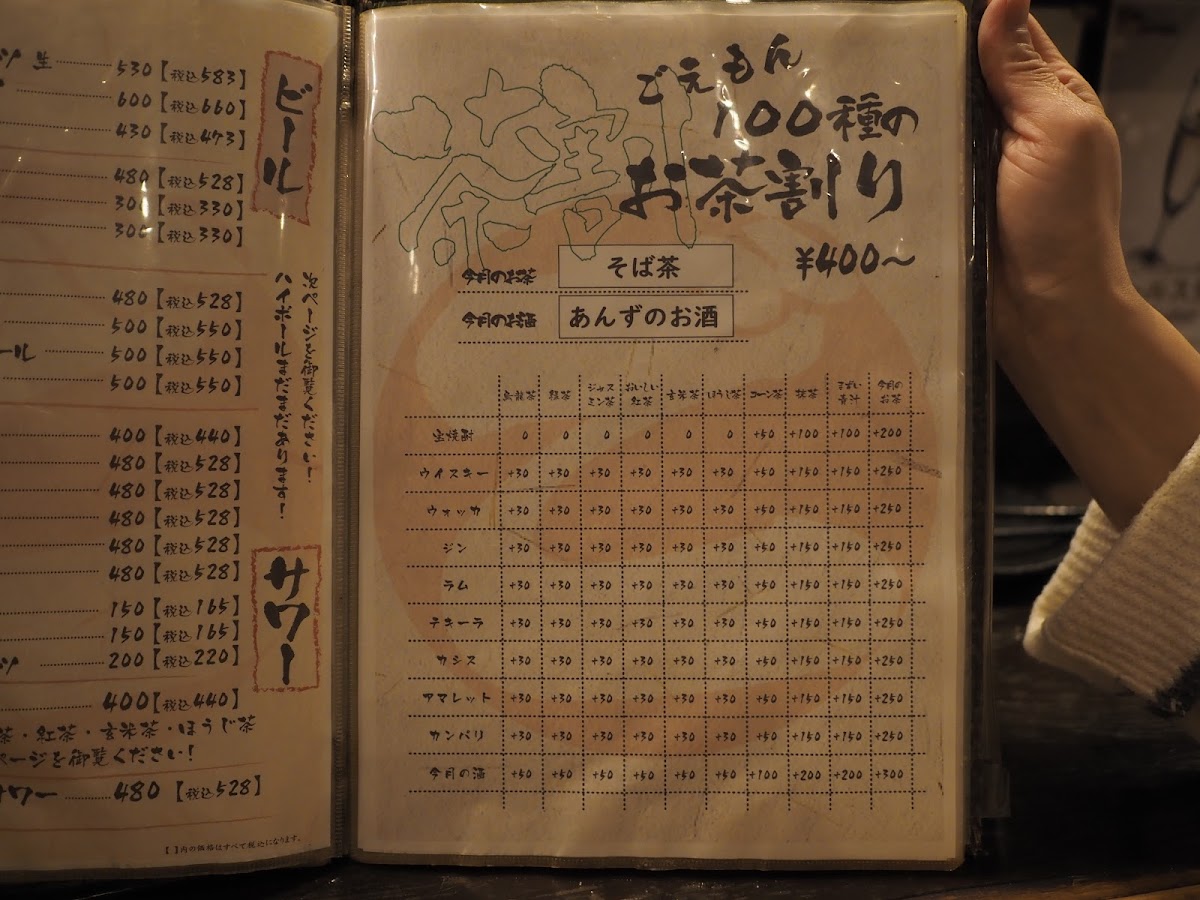 ビール
生 530【税込583】
600【税込660】
430【税込473】
480【税込528】
300【税込330】
300【税込330】
480【税込528】
500【税込550】
ール 500【税込550】
500【税込550】
次ページを御覧ください！
ハイボールまだまだあります！
サワー
400【税込440】
480【税込528】
480【税込528】
480【税込528】
480【税込528】
480【税込528】
150【税込165】
150【税込165】
200【税込220】
400【税込440】
茶・紅茶・玄米茶・ほうじ茶
ページを御覧ください！
サワー 480【税込528】
【 】内の価格はすべて税込になります。
茶割
ごえもん
100種の
お茶割り
¥400～
今月のお茶 そば茶
今月のお酒 あんずのお酒
烏龍茶 緑茶 ジャスミン茶 おいしい紅茶 玄米茶 ほうじ茶 コーン茶 抹茶 すごい青汁 今月のお茶
宝焼酎 0 0 0 0 0 0 +50 +100 +100 +200
ウイスキー +30 +30 +30 +30 +30 +30 +50 +150 +150 +250
ウォッカ +30 +30 +30 +30 +30 +30 +50 +150 +150 +250
ジン +30 +30 +30 +30 +30 +30 +50 +150 +150 +250
ラム +30 +30 +30 +30 +30 +30 +50 +150 +150 +250
テキーラ +30 +30 +30 +30 +30 +30 +50 +150 +150 +250
カシス +30 +30 +30 +30 +30 +30 +50 +150 +150 +250
アマレット +30 +30 +30 +30 +30 +30 +50 +150 +150 +250
カンパリ +30 +30 +30 +30 +30 +30 +50 +150 +150 +250
今月の酒 +50 +50 +50 +50 +50 +50 +100 +200 +200 +300